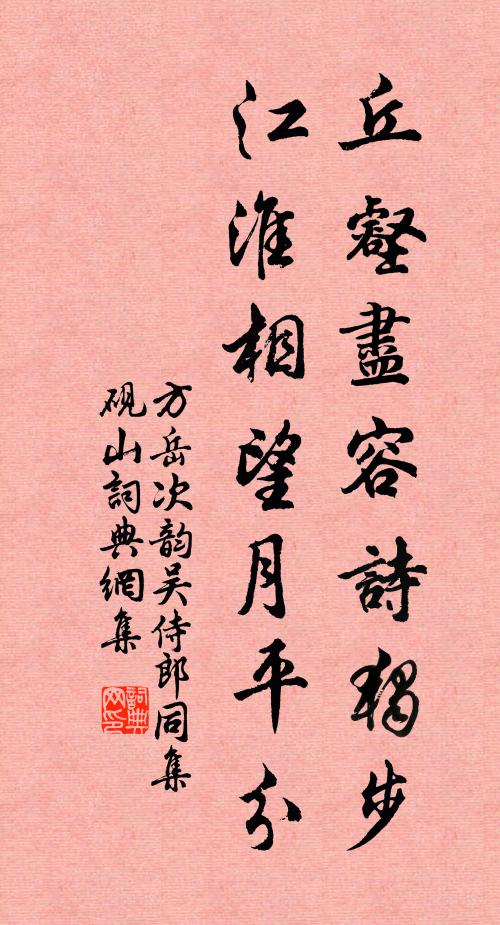 丘壑盡容詩獨步
江淮相望月平分
方岳次韵吴侍郎同集
砚山詞典網集
詞典网印